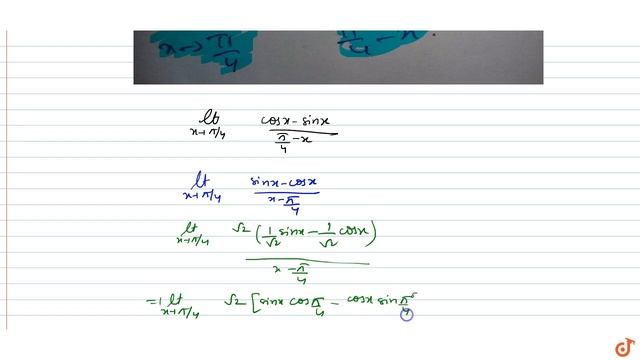 x→π/4 π/4 - x
lt x→π/4 cosx - sinx / π/4 - x
lt x→π/4 sinx - cosx / x - π/4
lt x→π/4 √2 (1/√2 sinx - 1/√2 cosx) / x - π/4
= lt x→π/4 √2 [sinx cos π/4 - cosx sin π/4